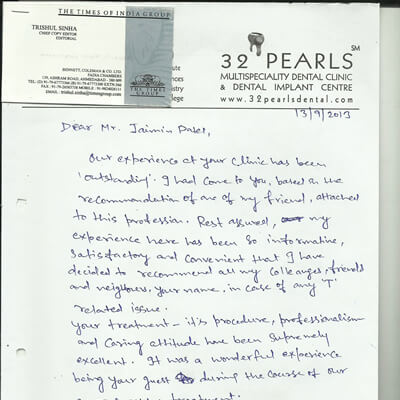 THE TIMES OF INDIA GROUP
TRISHUL SINHA
CHIEF COPY EDITOR
EDITORIAL
BENNETT, COLEMAN & CO. LTD.
FADIA CHAMBERS
139, ASHRAM ROAD, AHMEDABAD - 380 009
EMAIL : trishul.sinha@timesgroup.com
THE TIMES
GROUP
32 PEARLS SM
MULTISPECIALITY DENTAL CLINIC
& DENTAL IMPLANT CENTRE
www.32pearlsdental.com
13/9/2013
Dear Mr. Jaimin Patel,
Our experience at your clinic has been
'outstanding'. I had come to you, based on the
recommendation of one of my friend, attached
to this profession. Rest assured, my
experience here has been so informative,
satisfactory and convenient that I have
decided to recommend all my colleagues, friends
and neighbours, your name, in case of any 'T'
related issue.
Your treatment - its procedure, professionalism
and caring attitude have been supremely
excellent. It was a wonderful experience
being your guest during the course of our
treatment.